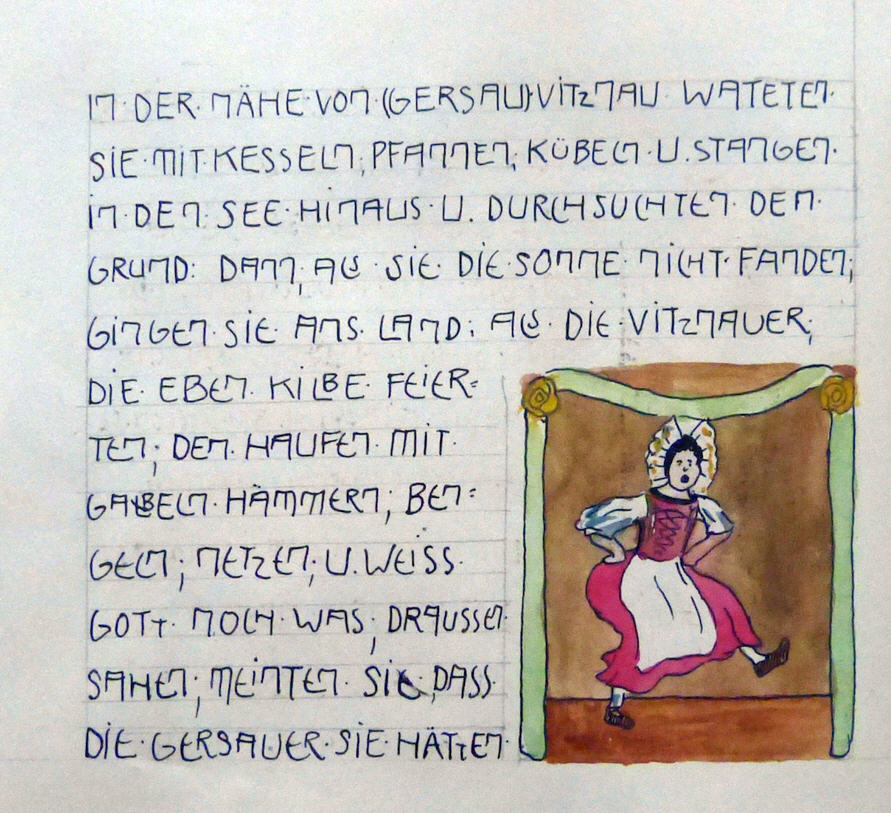 IN DER NÄHE VON (GERSAU) VITZNAU WATETEN
SIE MIT KESSELN, PFANNEN, KÜBELN U. STANGEN
IN DEN SEE HINAUS U. DURCHSUCHTEN DEN
GRUND: DANN, ALS SIE DIE SONNE NICHT FANDEN,
GINGEN SIE ANS LAND; ALS DIE VITZNAUER,
DIE EBEN KILBE FEIER=
TEN, DEN HAUFEN MIT
GABELN HÄMMERN, BEN=
GELN, NETZEN, U. WEISS
GOTT NOCH WAS, DRAUSSEN
SAHEN, MEINTEN SIE, DASS
DIE GERSAUER SIE HÄTTEN